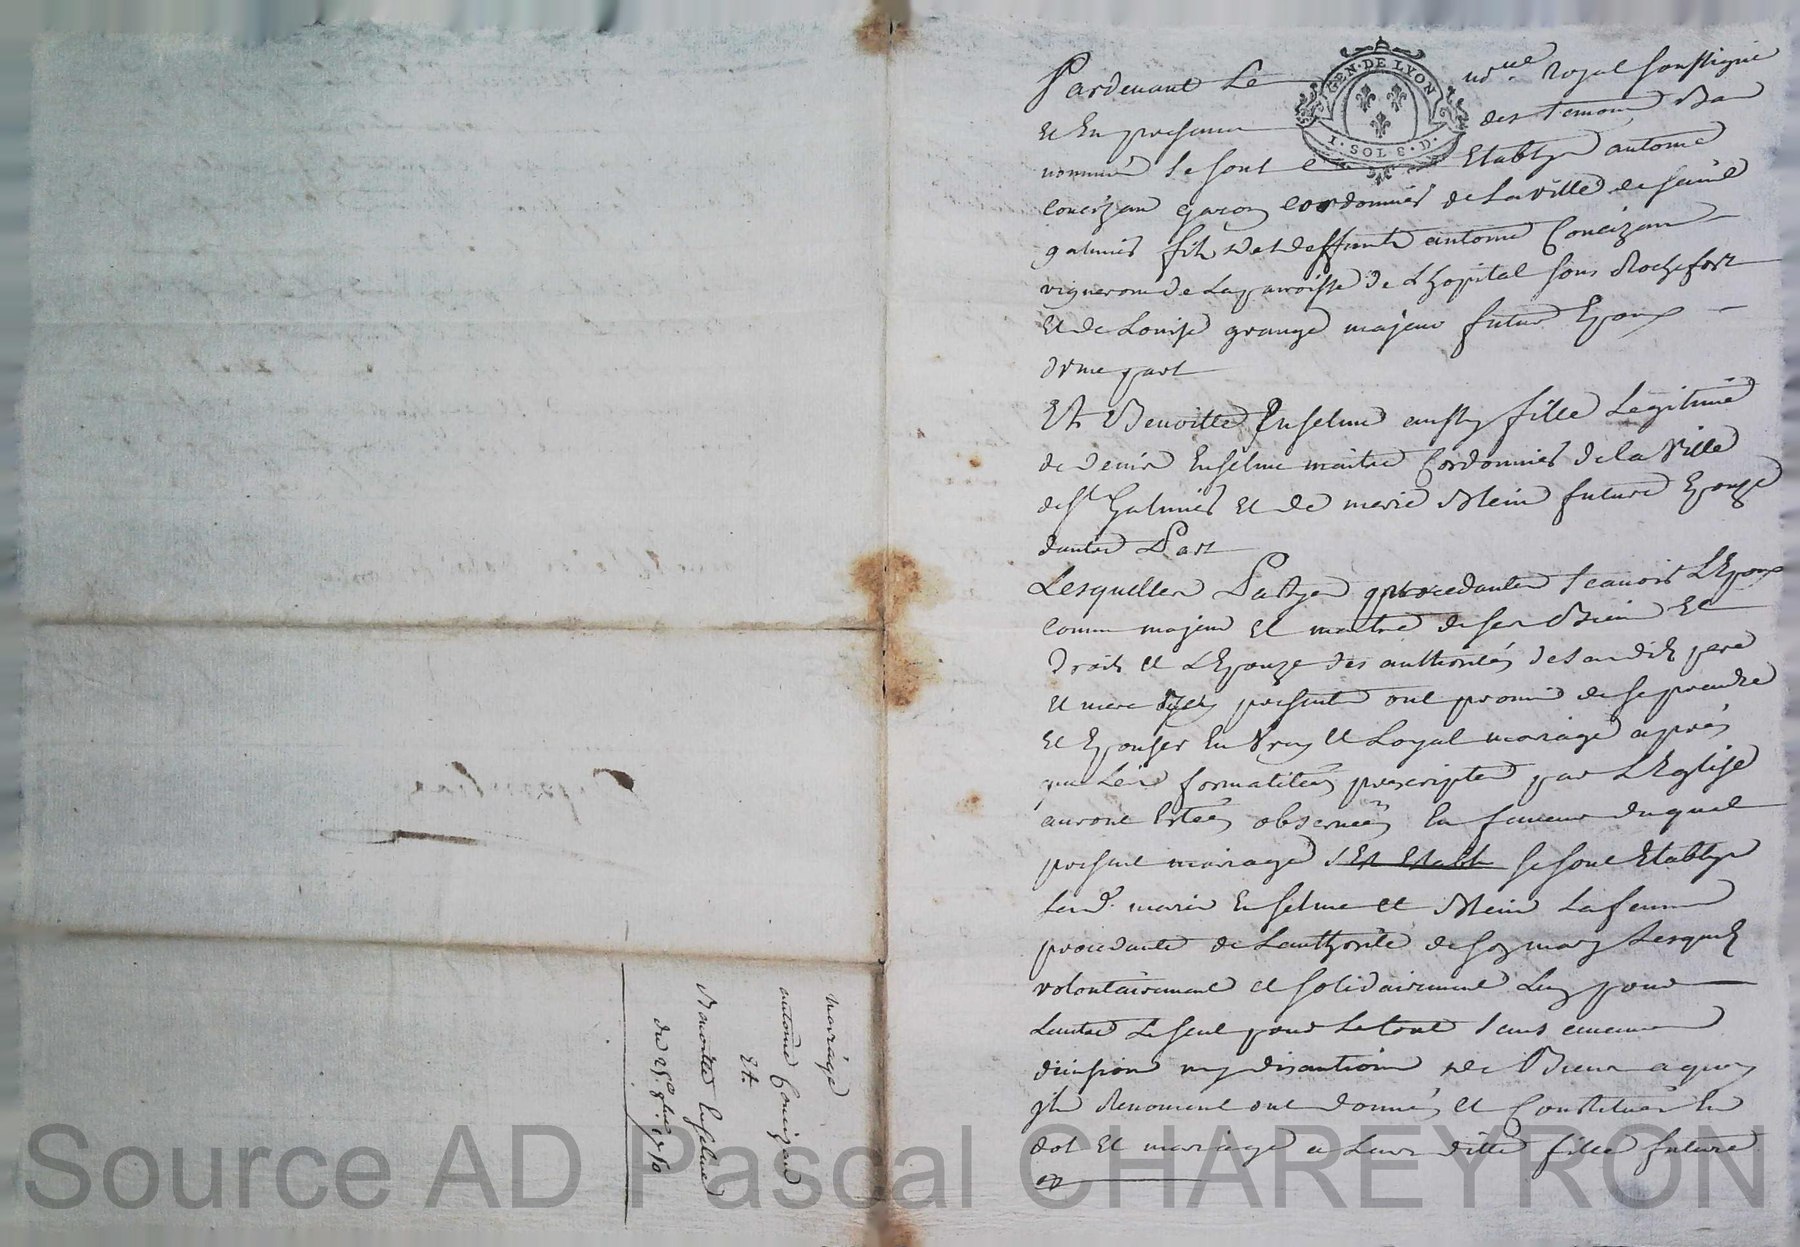 GEN · DE LYON
1 · SOL 8 · D ·
Pardevant Le no.re Royal soussigné
Et En presence des temoins Bas
nommés se sont Etablys antoine
Coneizan garçon cordonnier de La ville de saint
galmier fils de deffunt antoine Coneizan
vigneron de La parroisse de L'hopital sous Rochefort
Et de Louise grange majeur futur Epoux
d'vne part
Et Benoitte Enselme aussy fille Legitime
de denis Enselme maitre Cordonnier de la Ville
de st Galmier Et de marie Blein future Epouze
d'autre Part
Lesquelles Partyes procedantes scauoir L'Epoux
comme majeur Et maitre de ses Biens Et
Droits et L'Epouze des authorités de sesdits pere
Et mere icy presents ont promis de se prendre
Et Epouser En Vray Et Loyal mariage aprés
que Les formalitées prescriptes par L'Eglise
auront Estées observeés En faueur duquel
present mariage s'Est Etabli se sont Etablys
Lesd. mariés Enselme et Blein La femme
procedante de L'authorité de son mary Lesquels
volontairement et solidairement L'un pour
L'autre Le seul pour Le tout sans aucune
diuision ny discution de Biens a quoy
ils Renoncent ont donnés Et Constitués En
dot Et mariage a Leur ditte fille future
mariage
antoine Coneizan
Et.
Benoitte Enselme
du 25e 1780
Source AD Pascal CHAREYRON